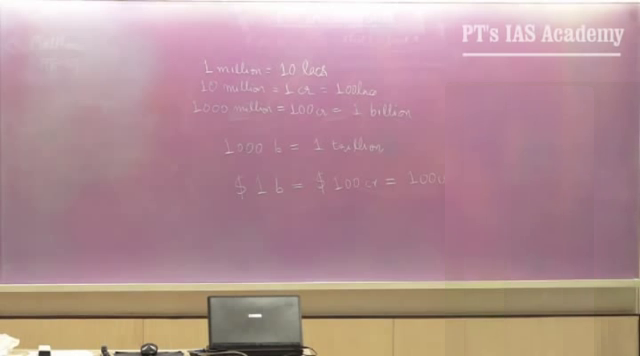 PT's IAS Academy
1 million = 10 lacs
10 million = 1 cr = 100 lacs
1000 million = 100 cr = 1 billion
1000 b = 1 trillion
$ 1 b = $ 100 cr =